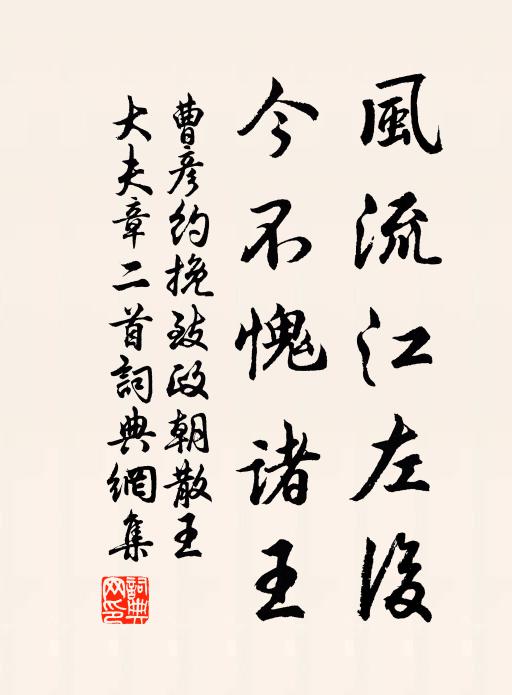 風流江左後
今不愧諸王
曹彥約挽致政朝散王
大夫章二首詞典網集
詞典網印